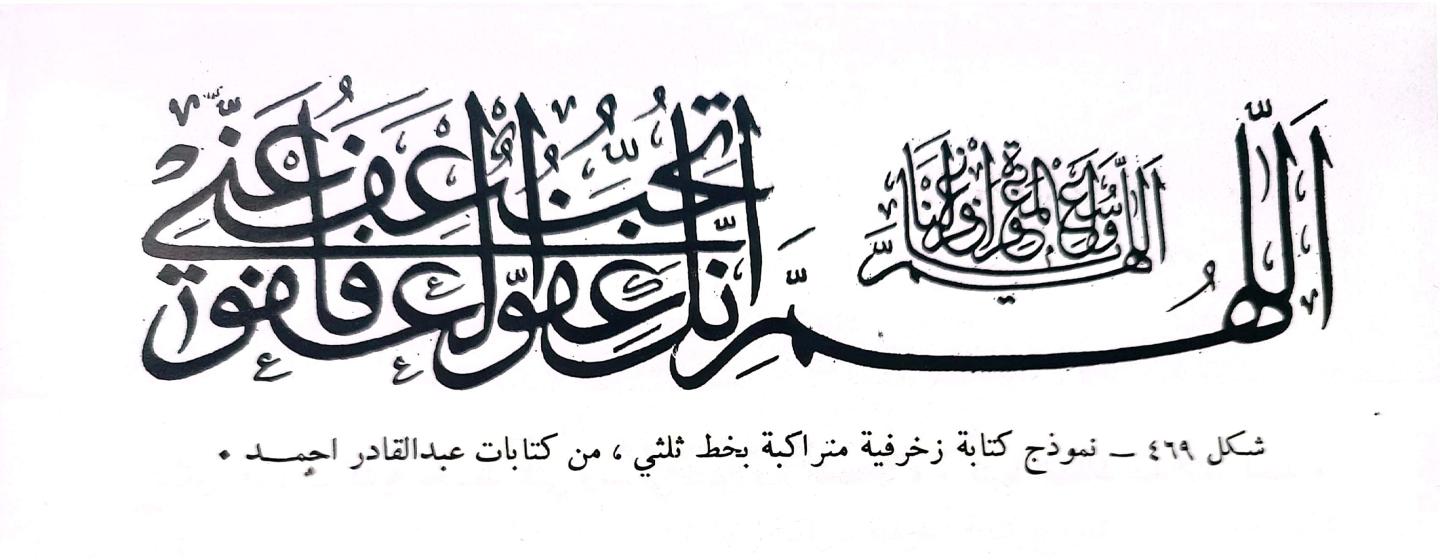 اللّهمّ انّك عفوّ تحبّ العفو فاعف عنّي
اللّهمّ يا واسع المغفرة اغفر لنا
شكل ٤٦٩ ــ نموذج كتابة زخرفية متراكبة بخط ثلثي ، من كتابات عبدالقادر احمد .